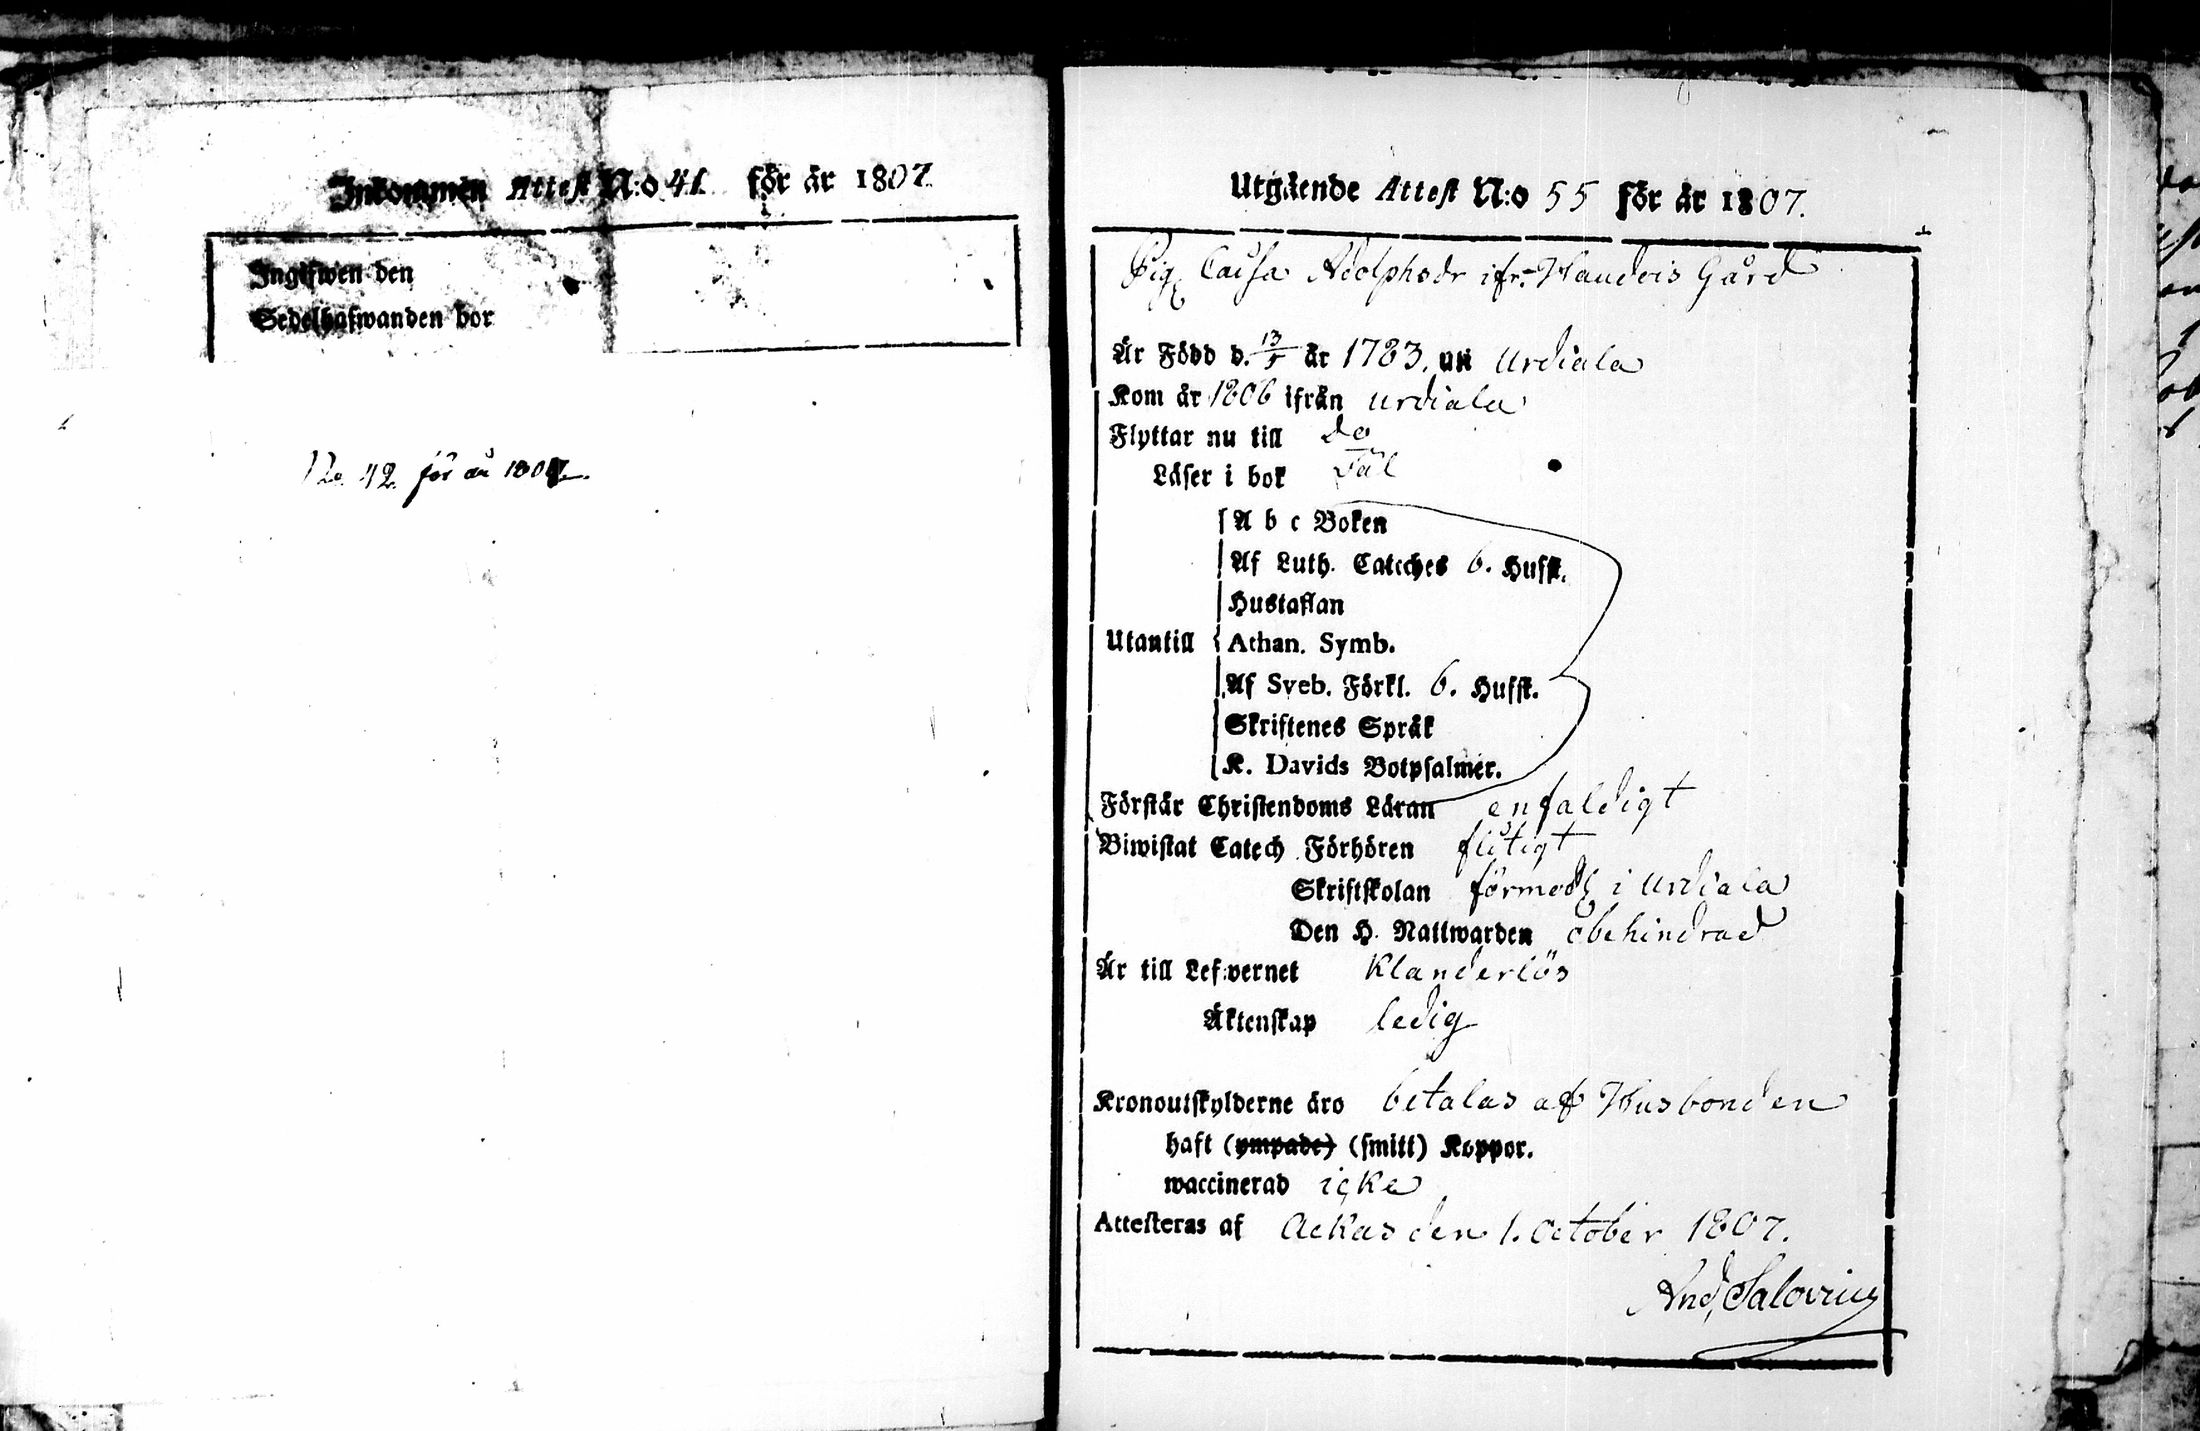 Inkommen Attest N:o 41 för år 1807.
Ingifwen den
Sedelhafwanden bor
No. 42 för år 1807.
Utgående Attest N:o 55 för år 1807.
Pig. Caisa Adolphsdr ifr. Gård
Är Född d. 13/5 år 1783. uti Urdiala
Kom år 1806 ifrån Urdiala
Flyttar nu till do
Läser i bok
A b c Boken
Af Luth. Cateches 6. Hufst.
Hustaflan
Utantill Athan. Symb.
Af Sveb. Förkl. 6. Hufst.
Skriftenes Språk
K. Davids Botpsalmer.
Förstår Christendoms Läran enfaldigt
Biwistat Catech Förhören flitigt
Skriftskolan förmodl i Urdiala
Den H. Nattwarden obehindrad
Är till Lefwernet Klanderlös
Äktenskap ledig
Kronoutskylderne äro betalas af Husbonden
haft (ympade) (smitt) Koppor.
waccinerad icke
Attesteras af Ackas den 1. October 1807.
And. Salovius